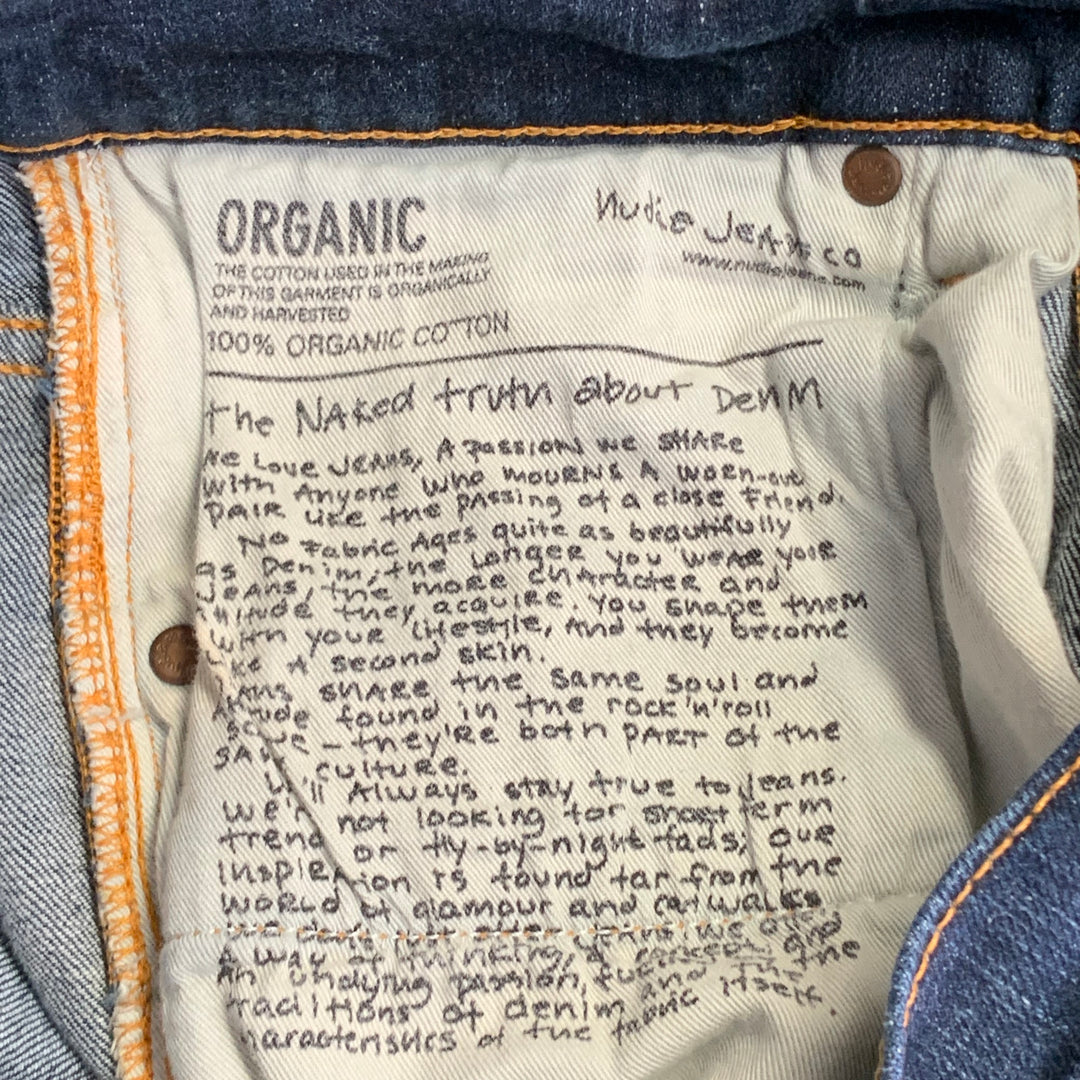 ORGANIC
THE COTTON USED IN THE MAKING
OF THIS GARMENT IS ORGANICALLY
AND HARVESTED
100% ORGANIC COTTON
Nudie Jeans co
www.nudiejeans.com
The Naked truth about Denim
We Love Jeans, A passion we share
with Anyone who mourns A worn-out
pair like the passing of a close friend.
No Fabric Ages quite as beautifully
as Denim, the longer you wear your
Jeans, the more character and
they acquire. You shape them
with your lifestyle, And they become
A second skin.
share the same soul and
found in the rock'n'roll
they're both part of the
culture.
Always stay true to Jeans.
We're not looking for short term
trend or fly-by-night fads, our
inspiration is found far from the
world of glamour and catwalks
A way of thinking, A concept, and
An undying passion, for and the
traditions of denim
characteristics of the fabric itself